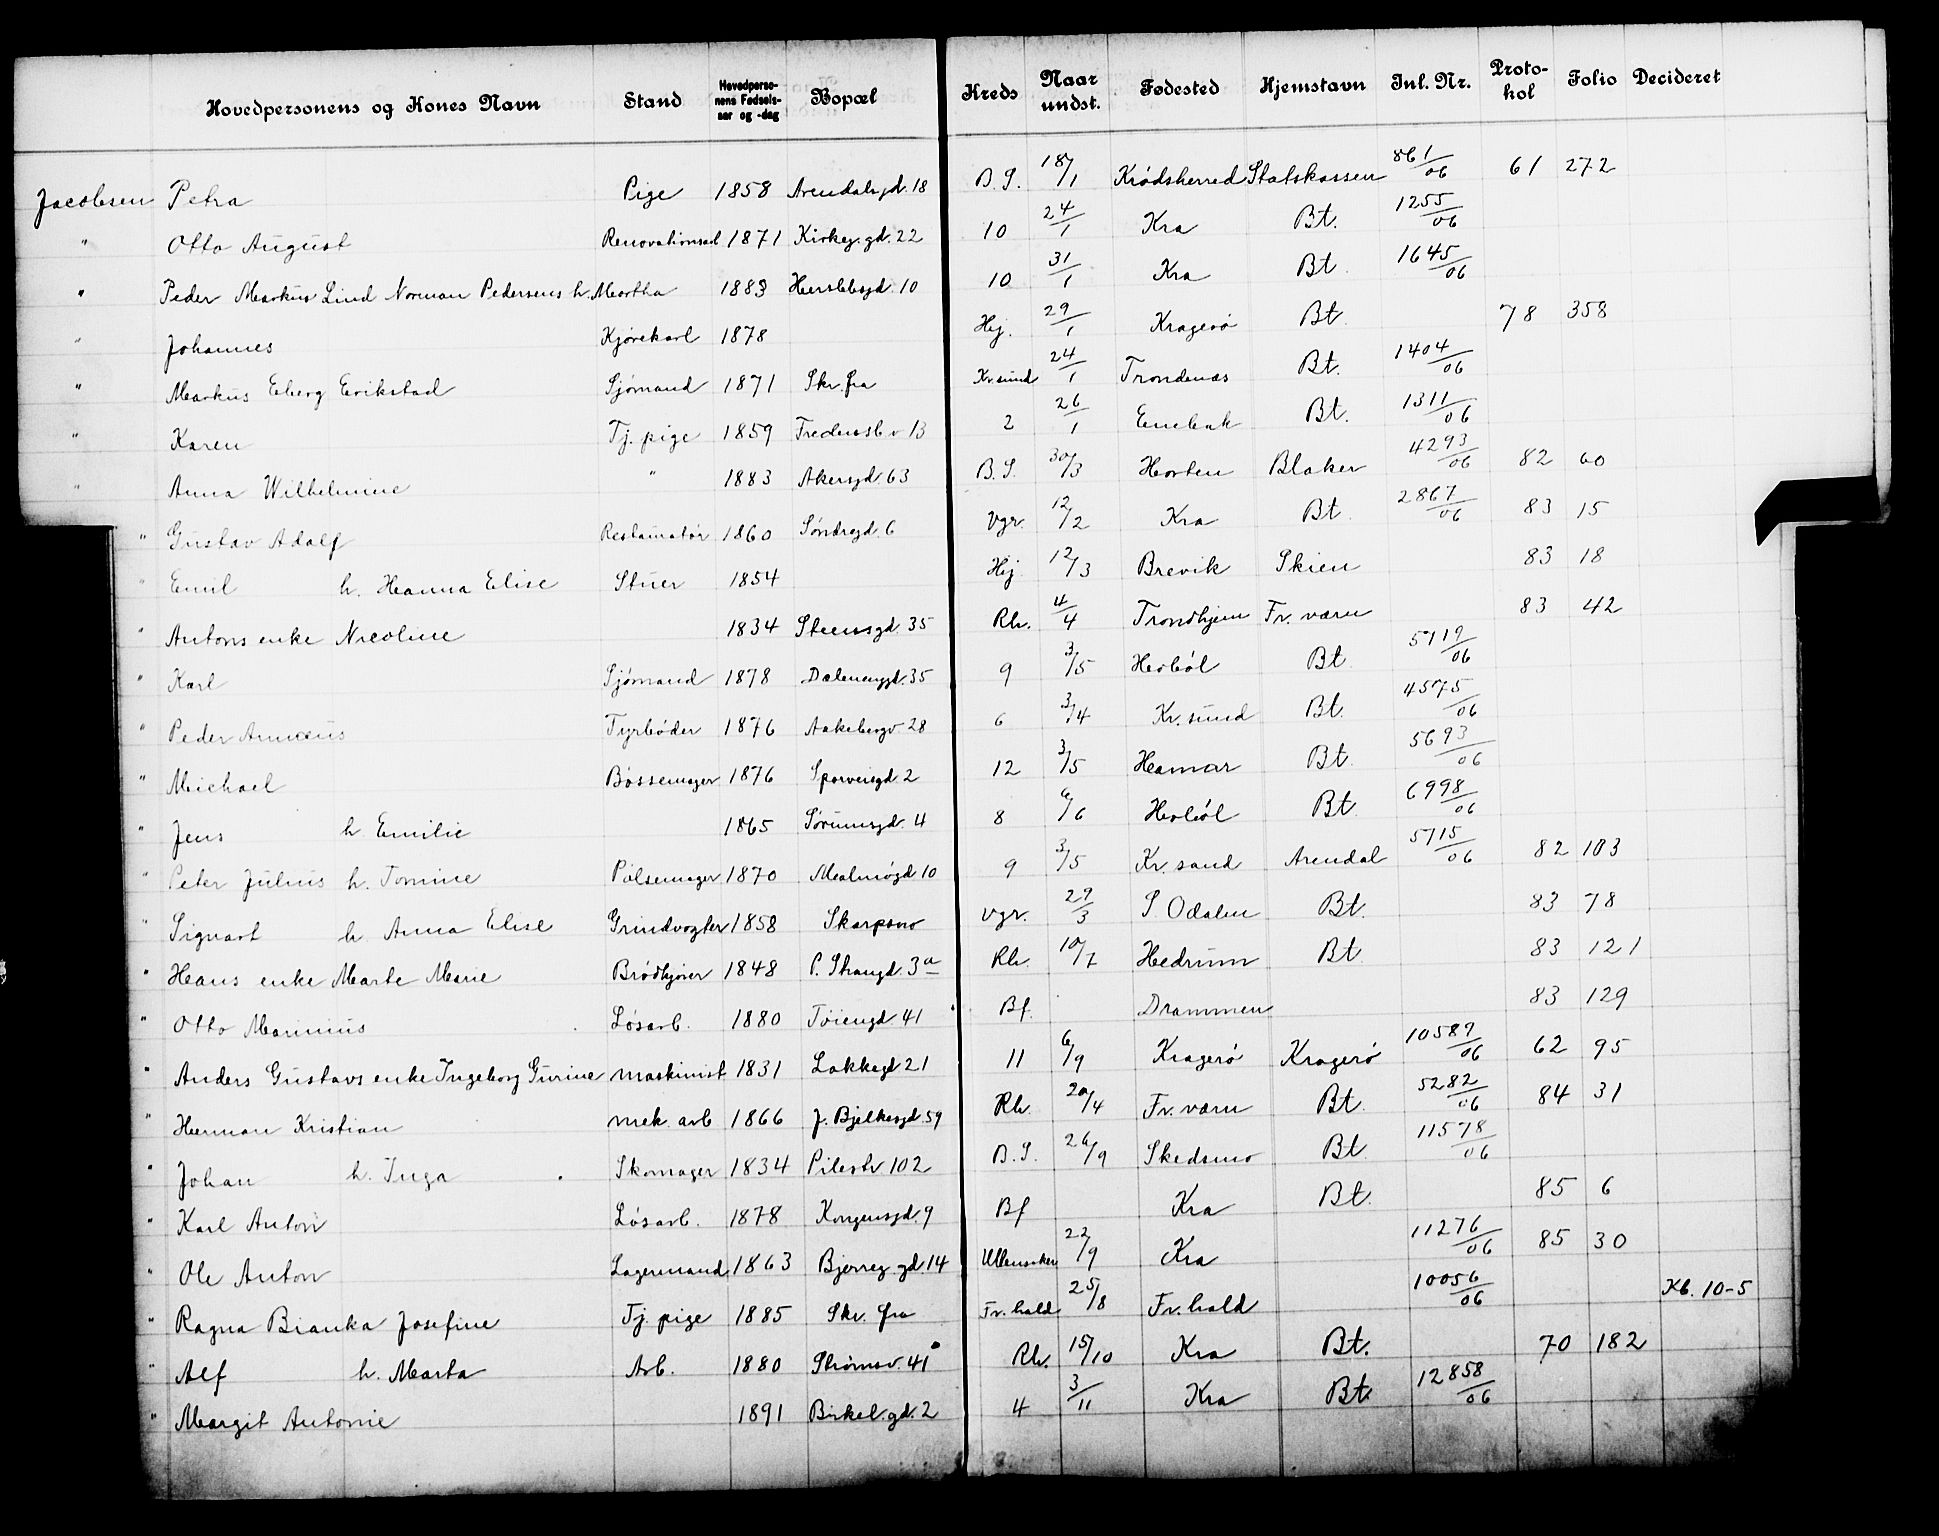 Hovedpersonens og Kones Navn Stand Hovedpersonens Fødselsaar og -dag Bopæl Kreds Naar undst. Fødested Hjemstavn Inl. Nr. Protokol Folio Decideret
Jacobsen Petra Pige 1858 Arendalsgd. 18 B.S. 18/1 Krødsherred Statskassen 861/06 61 272
" Otto August Renovationsarb 1871 Kirkeg. gd. 22 10 24/1 Kra Bt. 1255/06
" Peder Markus Lind Norman Pedersens h. Martha 1883 Herslebsgd. 10 10 31/1 Kra Bt. 1645/06
" Johannes Kjørekarl 1878 Hej. 29/1 Kragerø Bt. 78 358
" Markus Eberg Erikstad Sjømand 1871 Skr. fra Kr. sund 24/1 Trondenæs Bt. 1404/06
" Karen Tj. pige 1859 Fredensb. v 13 2 26/1 Enebak Bt. 1311/06
" Anna Wilhelmine " 1883 Akersgd. 63 B.S. 30/3 Horten Blaker 4293/06 82 60
" Gustav Adolf Restauratør 1860 Søndregd. 6 Vgr. 12/2 Kra Bt. 2867/06 83 15
" Emil h. Hanna Elise Stuer 1854 Hej. 12/3 Brevik Skien 83 18
" Antons enke Nicoline 1834 Steensgd. 35 Rh. 4/4 Trondhjem Fr. værn 83 42
" Karl Sjømand 1878 Dælenenggd. 35 9 3/5 Hobøl Bt. 5719/06
" Peder Annæus Fyrbøder 1876 Aakebergv 28 6 3/4 Kr. sund Bt. 4575/06
" Michael Bøssemager 1876 Sporveisgd. 2 12 3/5 Hamar Bt. 5693/06
" Jens h. Emilie 1865 Sørumsgd. 4 8 6/6 Hobøl Bt. 6998/06
" Peter Julius h. Tomine Pølsemager 1870 Malmøgd 10 9 3/5 Kr. sand Arendal 5715/06 82 103
" Sigvart h. Anna Elise Grindvogter 1858 Skarpsno Vgr. 29/3 S. Odalen Bt. 83 78
" Hans enke Marte Marie Brødkjører 1848 P. Skaugd. 3a Rh. 10/7 Hedrum Bt. 83 121
" Otto Marinius Løsarb. 1880 Tøiengd 41 Bf. Drammen 83 129
" Anders Gustavs enke Ingeborg Gurine maskinist 1831 Lakkegd 21 11 6/9 Kragerø Kragerø 10589/06 62 95
" Herman Kristian mek. arb 1866 J. Bjelkesgd. 59 Rh. 20/4 Fr. værn Bt. 5282/06 84 31
" Johan h. Inga Skomager 1834 Pilestr 102 B.S. 26/9 Skedsmo Bt. 11578/06
" Karl Anton Løsarb. 1878 Kongensgd. 9 Bf Kra Bt. 85 6
" Ole Anton Lagermand 1863 Bjerreg. gd. 14 Ullensaker 22/9 Kra 11276/06 85 30
" Ragna Bianka Josefine Tj. pige 1885 Skr. fra Fr. hald 25/8 Fr. hald 10056/06 Kb. 10-5
" Alf h. Marta Arb. 1880 Strømsv. 41 Rh. 15/10 Kra Bt. 70 182
" Margit Antonie 1891 Birkel. gd. 2 4 3/11 Kra Bt. 12858/06